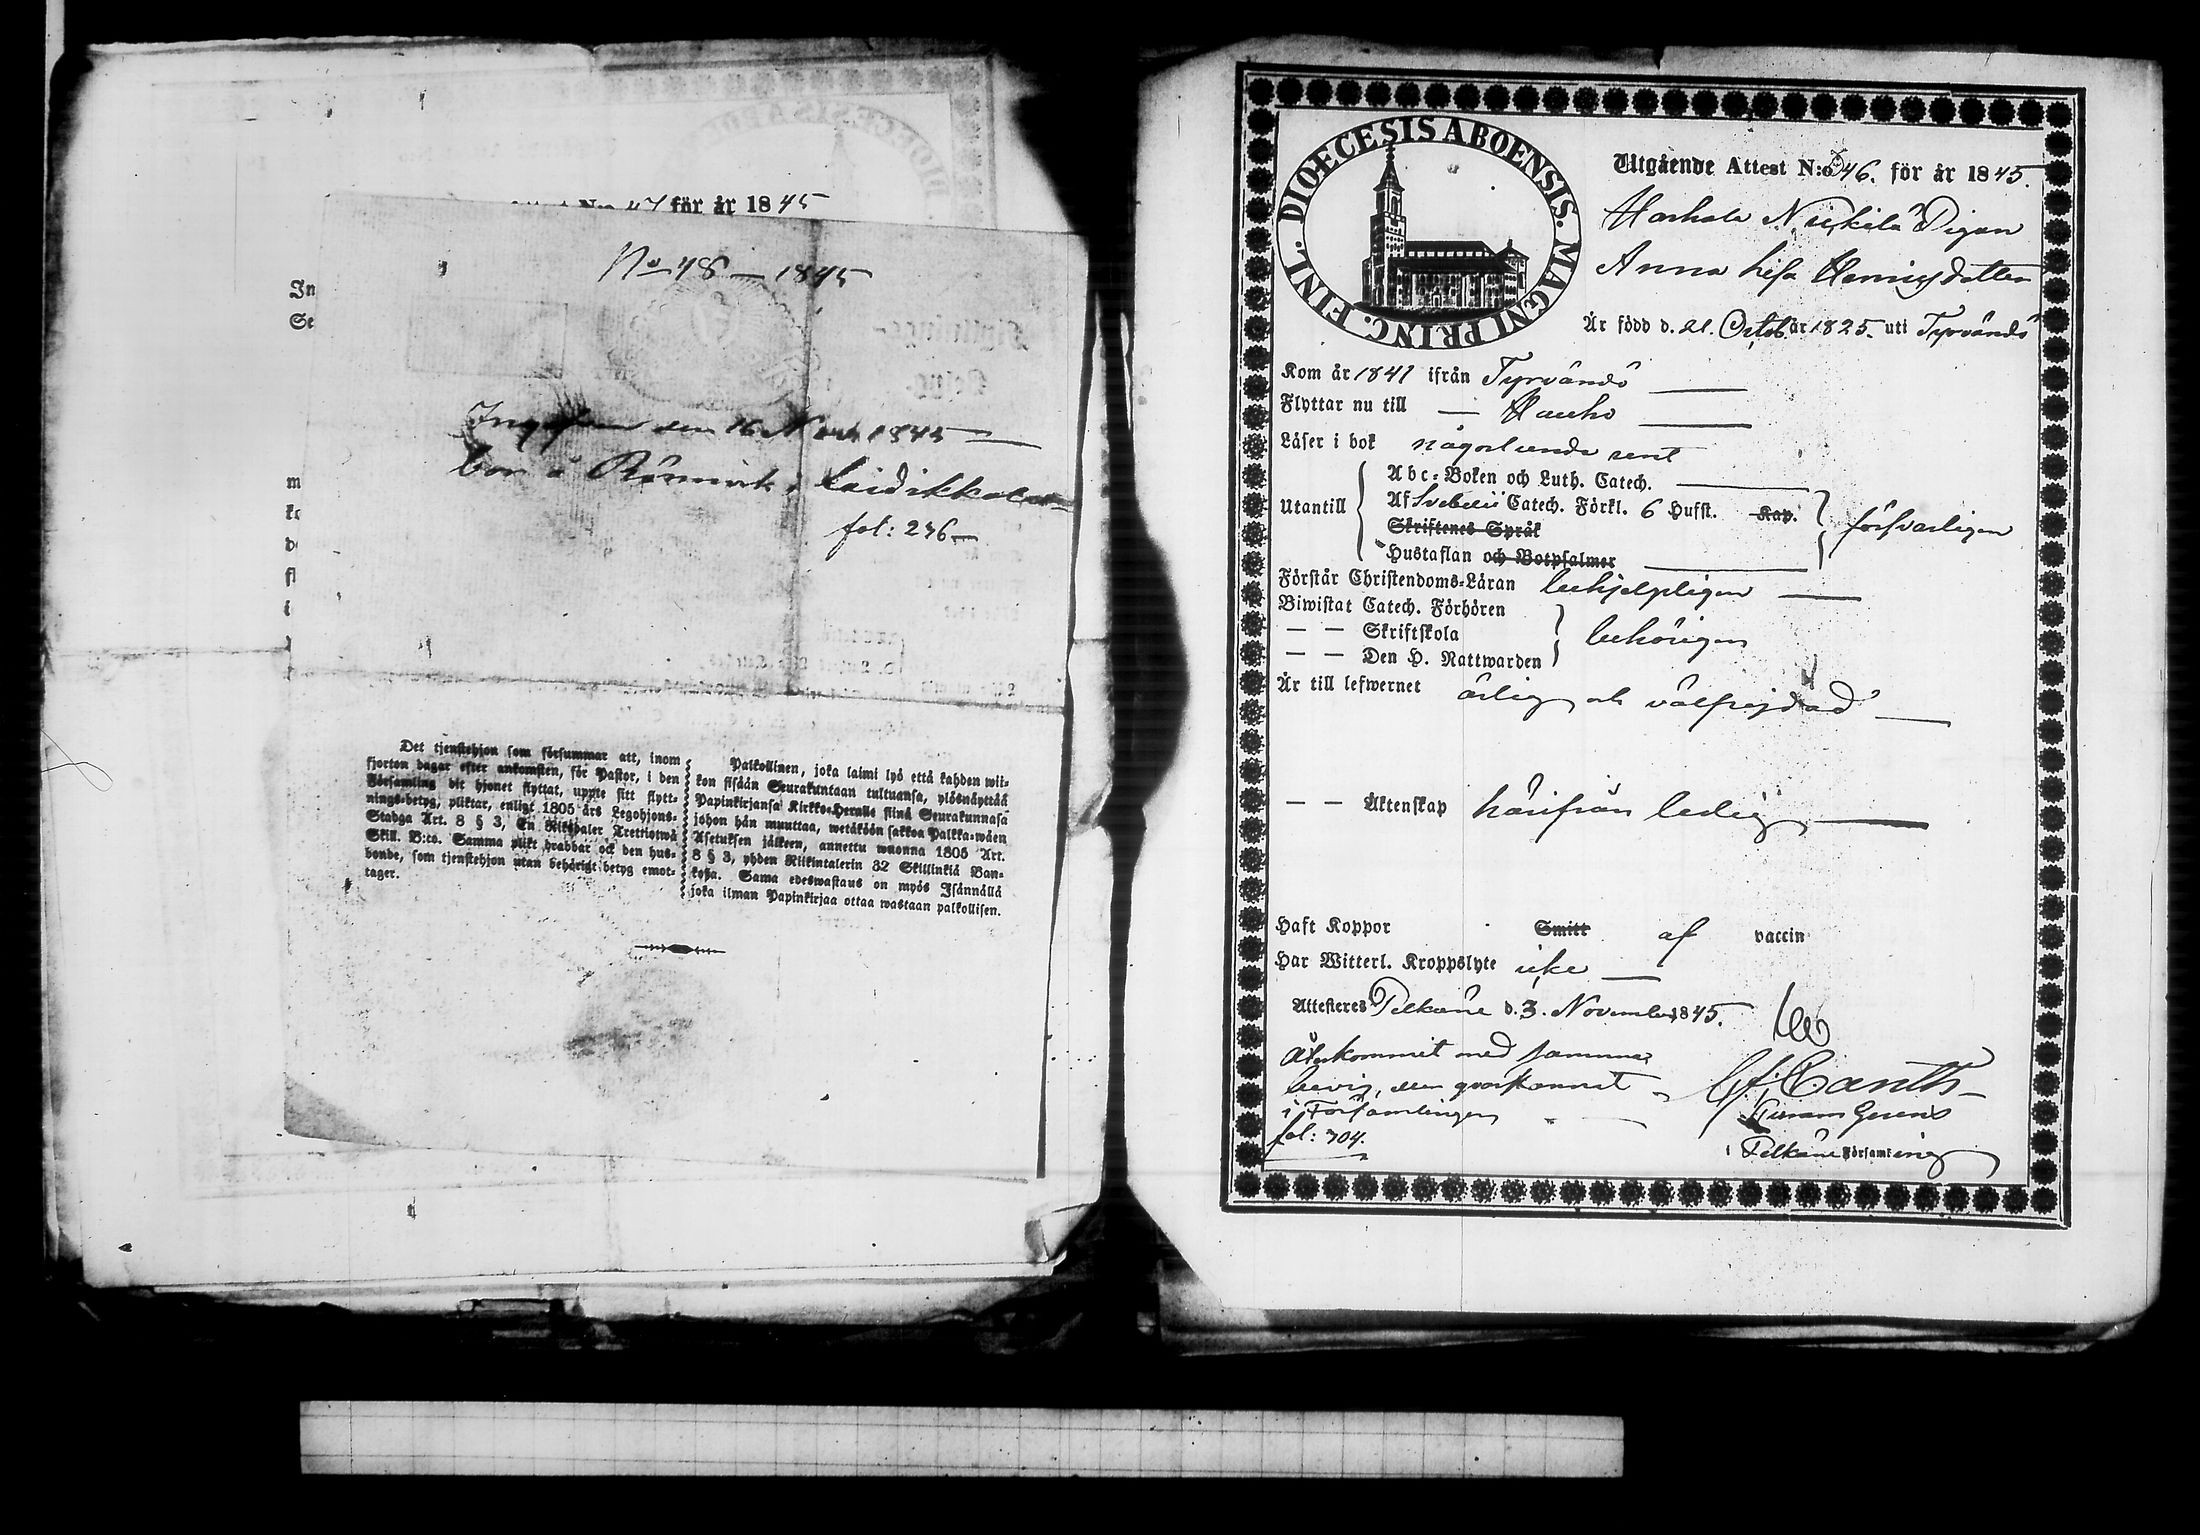 N:o 47 för år 1845
No 48 — 1845
In
Se
den 16 Nov 1845 —
bor å i Laidikkala
fol: 236 —
Det tjenstehjon som försummar att, inom
fjorton dagar efter ankomsten, för Pastor, i den
Församling dit hjonet flyttat, uppte sitt flytt-
nings-betyg, pliktar, enligt 1805 års Legohjons-
Stadga Art. 8 § 3, En Riksdaler Trettiotwå
Skill. B:co. Samma plikt drabbar ock den hus-
bonde, som tjenstehjon utan behörigt betyg emot-
tager.
Palkollinen, joka laimi lyö että kahden wii-
kon sisään Seurakuntaan tultuansa, ylösnäyttää
Papinkirjansa Kirkko-Herralle siinä Seurakunnasa
johon hän muuttaa, wetäköön sakkoa Palkka-wäen
Asetuksen jälkeen, annettu wuonna 1805 Art.
8 § 3, yhden Riikintalerin 32 Skillinkiä Ban-
kosa. Sama edeswastaus on myös Isännällä
joka ilman Papinkirjaa ottaa wastaan palkollisen.
DIOECESIS ABOENSIS. MAGNI PRINC. FINL.
Utgående Attest N:o 46. för år 1845.
Harhala Nickilä Pigan
Anna Lisa Henricsdotter
Är född d. 21. Octob. år 1825. uti Tyrvändö
Kom år 1841 ifrån Tyrvändö —
Flyttar nu till — Hauho —
Läser i bok någorlunda rent
Utantill
Abc-Boken och Luth. Catech. —
Af Svebelii Catech. Förkl. 6 Hufst. Kap.
Skriftenes Språk
Hustaflan och Botpsalmer —
försvarligen
Förstår Christendoms-Läran behjelpligen —
Biwistat Catech. Förhören
— — Skriftskola
— — Den H. Nattwarden
behörigen
Är till lefwernet ärlig och välfrejdad —
— — Äktenskap härifrån ledig —
Haft Koppor Smitt af vaccin
Har Witterl. Kroppslyte icke —
Attesteres Pelkäne d. 3. November 1845.
Återkommit med samma
bevis, men qvarstannat
i Församlingen
fol: 304.
Canth
i Pelkäne Församling